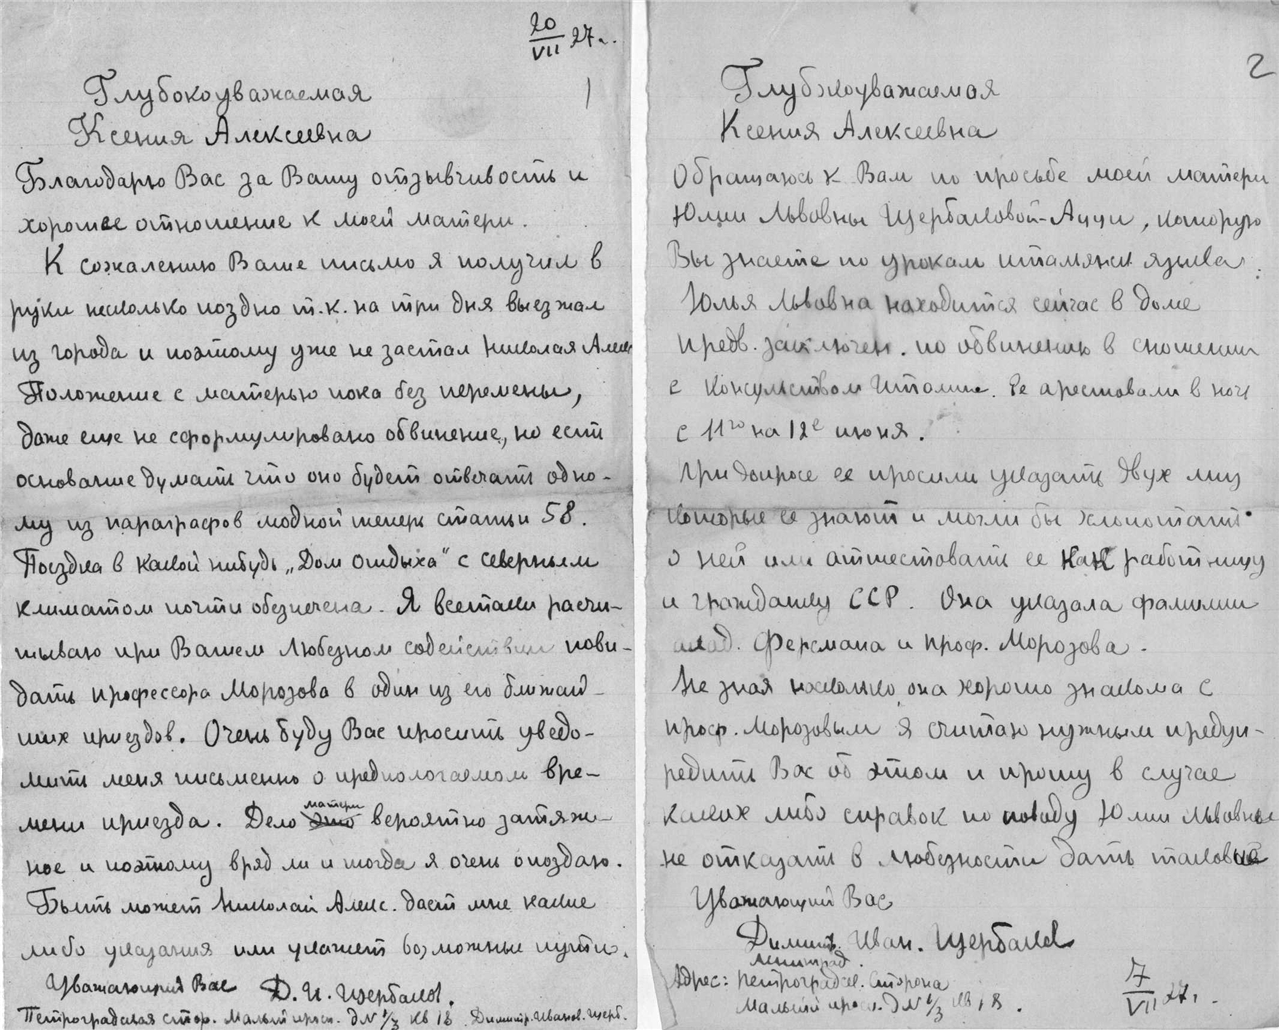 20/VII 27 г.
1
Глубокоуважаемая
Ксения Алексеевна
Благодарю Вас за Вашу отзывчивость и
хорошее отношение к моей матери.
К сожалению Ваше письмо я получил в
руки несколько поздно т.к. на три дня выезжал
из города и поэтому уже не застал Николая Алекс
Положение с матерью пока без перемены,
даже еще не сформулировано обвинение, но есть
основание думать что оно будет отвечать одно-
му из параграфов модной теперь статьи 58.
Поездка в какой нибудь „Дом отдыха" с северным
климатом почти обеспечена. Я всетаки расчи-
тываю при Вашем любезном содействии пови-
дать профессора Морозова в один из его ближай-
ших приездов. Очень буду Вас просить уведо-
мить меня письменно о предпологаемом вре-
мени приезда. Дело матери вероятно затяж-
ное и поэтому вряд ли и тогда я очень опоздаю.
Быть может Николай Алекс. даст мне какие
либо указания или укажет возможные пути.
Уважающий Вас Д. И. Щербаков.
Петроградская стор. Малый просп. д N 1/3 кв 18. Димитр. Иванов. Щерб.
2
Глубокоуважаемая
Ксения Алексеевна
Обращаюсь к Вам по просьбе моей матери
Юлии Львовны Щербаковой-Ацци, которую
Вы знаете по урокам итальянск языка.
Юлья Львовна находится сейчас в доме
предв. заключен. по обвинению в сношении
с Консульством Италии. Ее арестовали в ночь
с 11го на 12е июня.
При допросе ее просили указать двух лиц
которые ее знают и могли бы хлопотать
о ней или аттестовать ее как работницу
и гражданку ССР. Она указала фамилии
акад. Ферсмана и проф. Морозова.
Не зная насколько она хорошо знакома с
проф. Морозовым я считаю нужным предуп-
редить Вас об этом и прошу в случае
каких либо справок по поводу Юлии Львовны
не отказать в любезности дать таковые
Уважающий Вас
Димитр. Иван. Щербаков
Ленинград.
Адрес: Петроградск. Сторона
Малый просп. д N 1/3 кв 18.
7/VII 27 г.